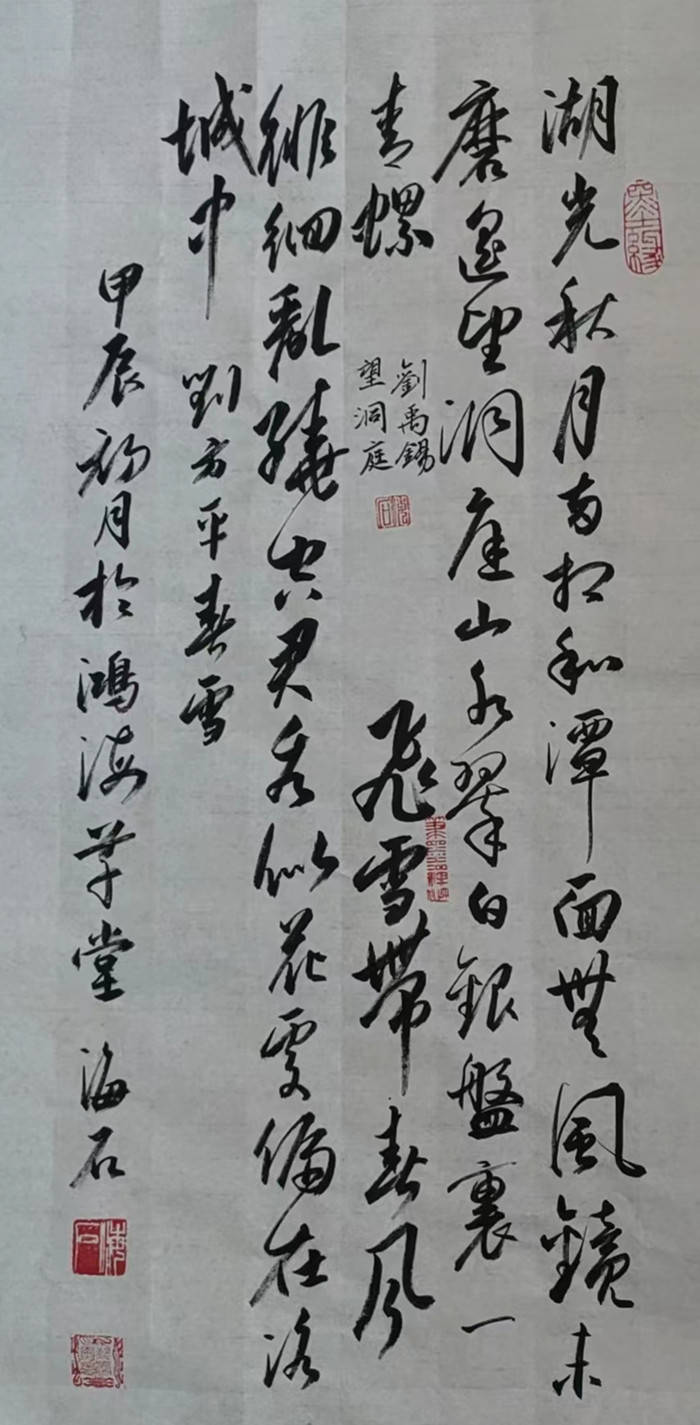 湖光秋月两相和潭面無風鏡未
磨遥望洞庭山水翠白銀盤裏一
青螺
劉禹錫
望洞庭
飛雪帶春風
徘徊亂繞空君看似花處偏在洛
城中
劉方平春雪
甲辰初月於鴻海草堂 海石
海石